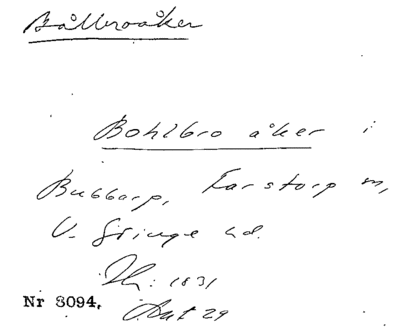 Bållbroåker
Bohlbro åker i
Bubbarp, Farstorp sn,
V. Göinge hd.
Lh: 1831
Nr 3094. Akt 29